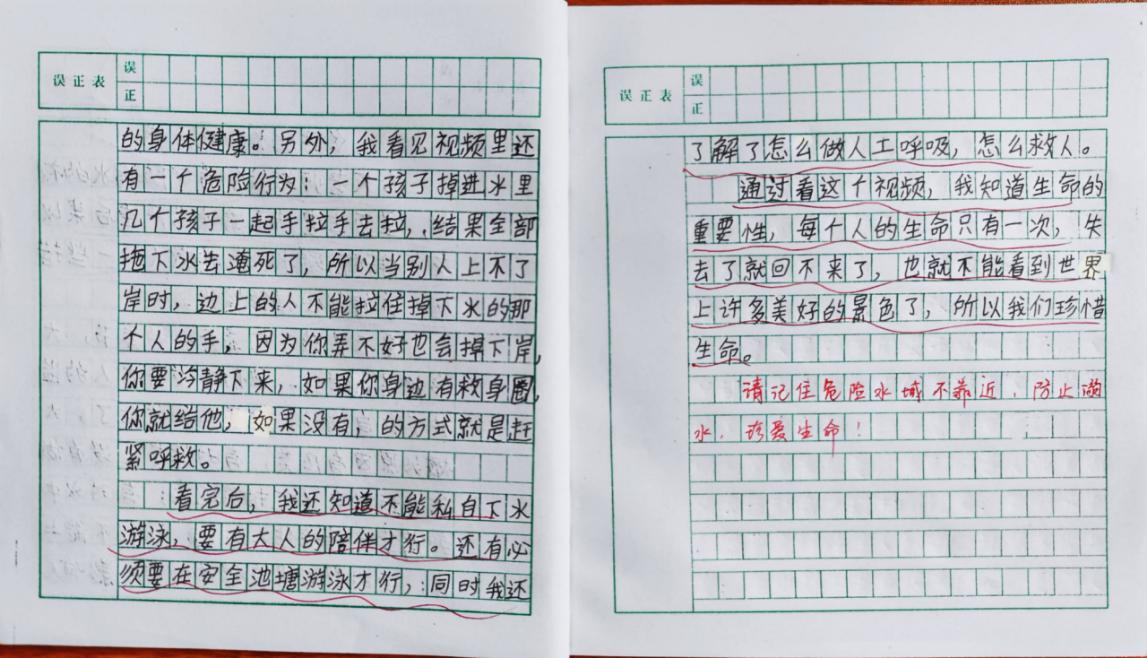 误正表
误
正
的身体健康。另外，我看见视频里还
有一个危险行为：一个孩子掉进水里
几个孩子一起手拉手去拉，结果全部
拖下水去淹死了，所以当别人上不了
岸时，边上的人不能拉住掉下水的那
个人的手，因为你弄不好也会掉下岸，
你要冷静下来，如果你身边有救身圈，
你就给他，如果没有，的方式就是赶
紧呼救。
看完后，我还知道不能私自下水
游泳，要有大人的陪伴才行。还有必
须要在安全池塘游泳才行，同时我还
误正表
误
正
了解了怎么做人工呼吸，怎么救人。
通过看这个视频，我知道生命的
重要性，每个人的生命只有一次，失
去了就回不来了，也就不能看到世界
上许多美好的景色了，所以我们珍惜
生命。
请记住危险水域不靠近，防止溺
水，珍爱生命！